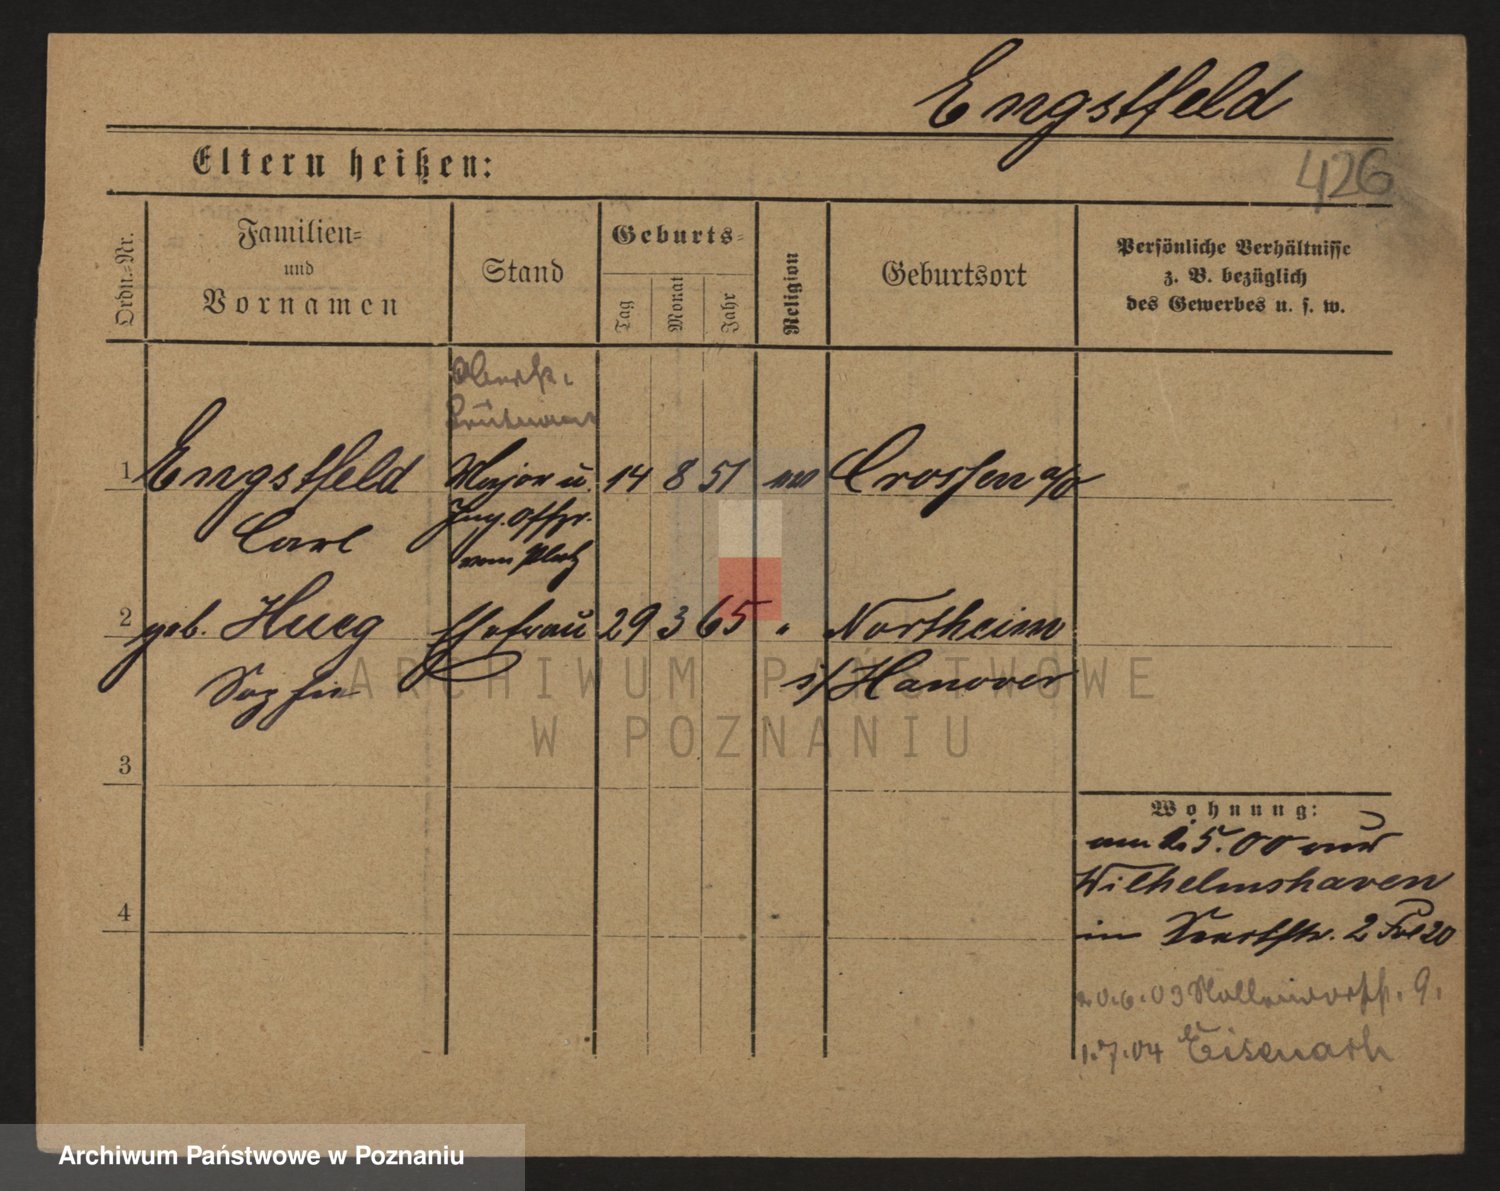 Engstfeld
Eltern heißen:
426
Ordn.=Nr.
Familien=
und
Vornamen
Stand
Geburts=
Tag
Monat
Jahr
Religion
Geburtsort
Persönliche Verhältnisse
z. B. bezüglich
des Gewerbes u. s. w.
Oberst-
Leutnant
1 Engstfeld Major u. 14 8 51 ev Crossen a/O
Carl Ing. Offz.
vom Platz
2 geb. Hueg Ehefrau 29 3 65 " Northeim
Sophie i/Hanover
ARCHIWUM PAŃSTWOWE
W POZNANIU
3
Wohnung:
am 2.5.00 aus
Wilhelmshaven
4
in 2 20
20.6.03 9.
1.7.04 Eisenach
Archiwum Państwowe w Poznaniu